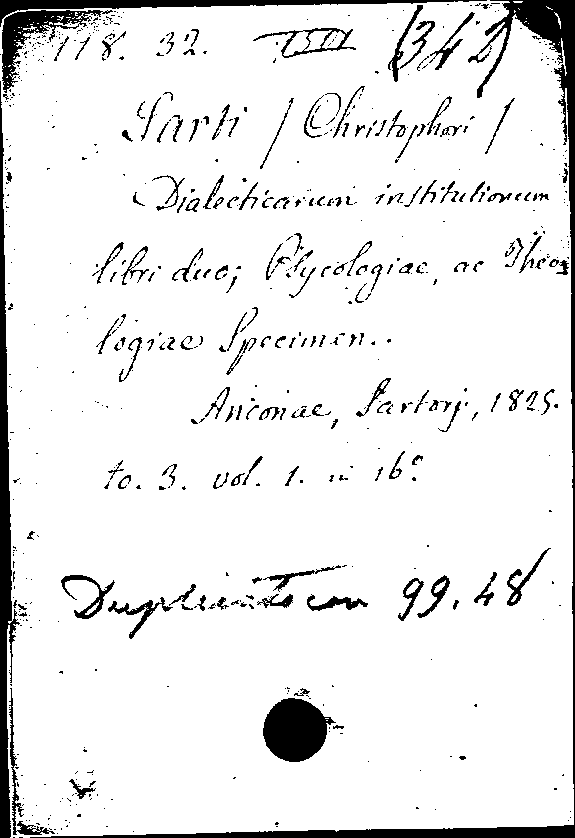 118. 32. 1501 (342)
Sarti / Christophori /
Dialecticarum institutionum
libri duo; Psycologiae, ac Theo=
logiae Specimen..
Anconae, Sartorj, 1825.
to. 3. vol. 1. in 16°
Duplicato con 99.48